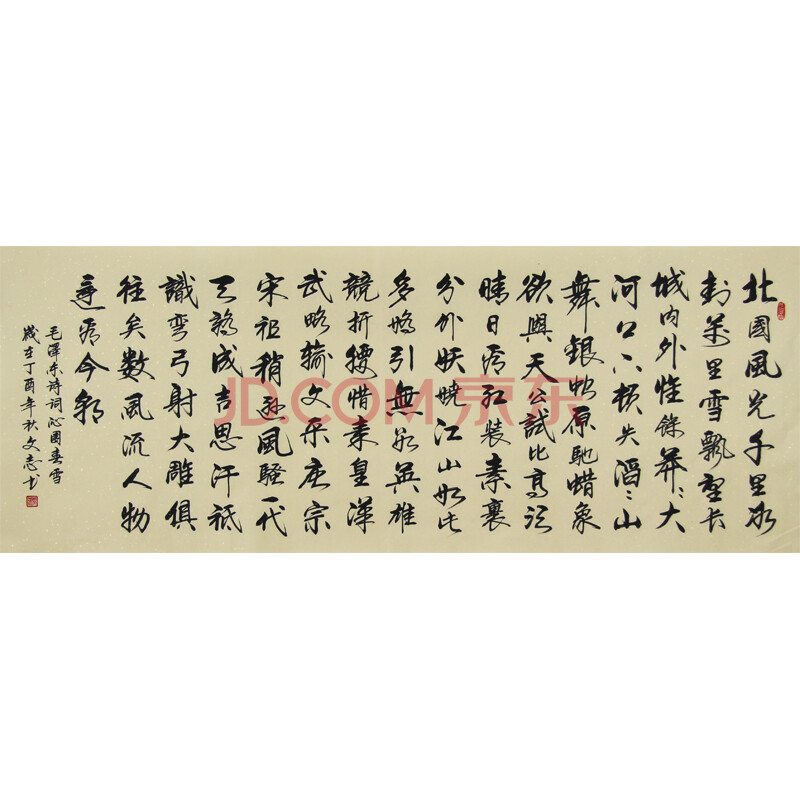 北國風光千里冰
封萬里雪飄望长
城内外惟餘莽〻大
河上下頓失滔〻山
舞銀蛇原馳蜡象
欲與天公試比高須
晴日看红裝素裹
分外妖嬈江山如此
多嬌引無数英雄
競折腰惜秦皇漢
武略输文采唐宗
宋祖稍逊風騷一代
天骄成吉思汗祗
識弯弓射大雕俱
往矣數風流人物
還看今朝
毛澤东诗词沁園春雪
歲在丁酉年秋文志书
JD.COM 京东